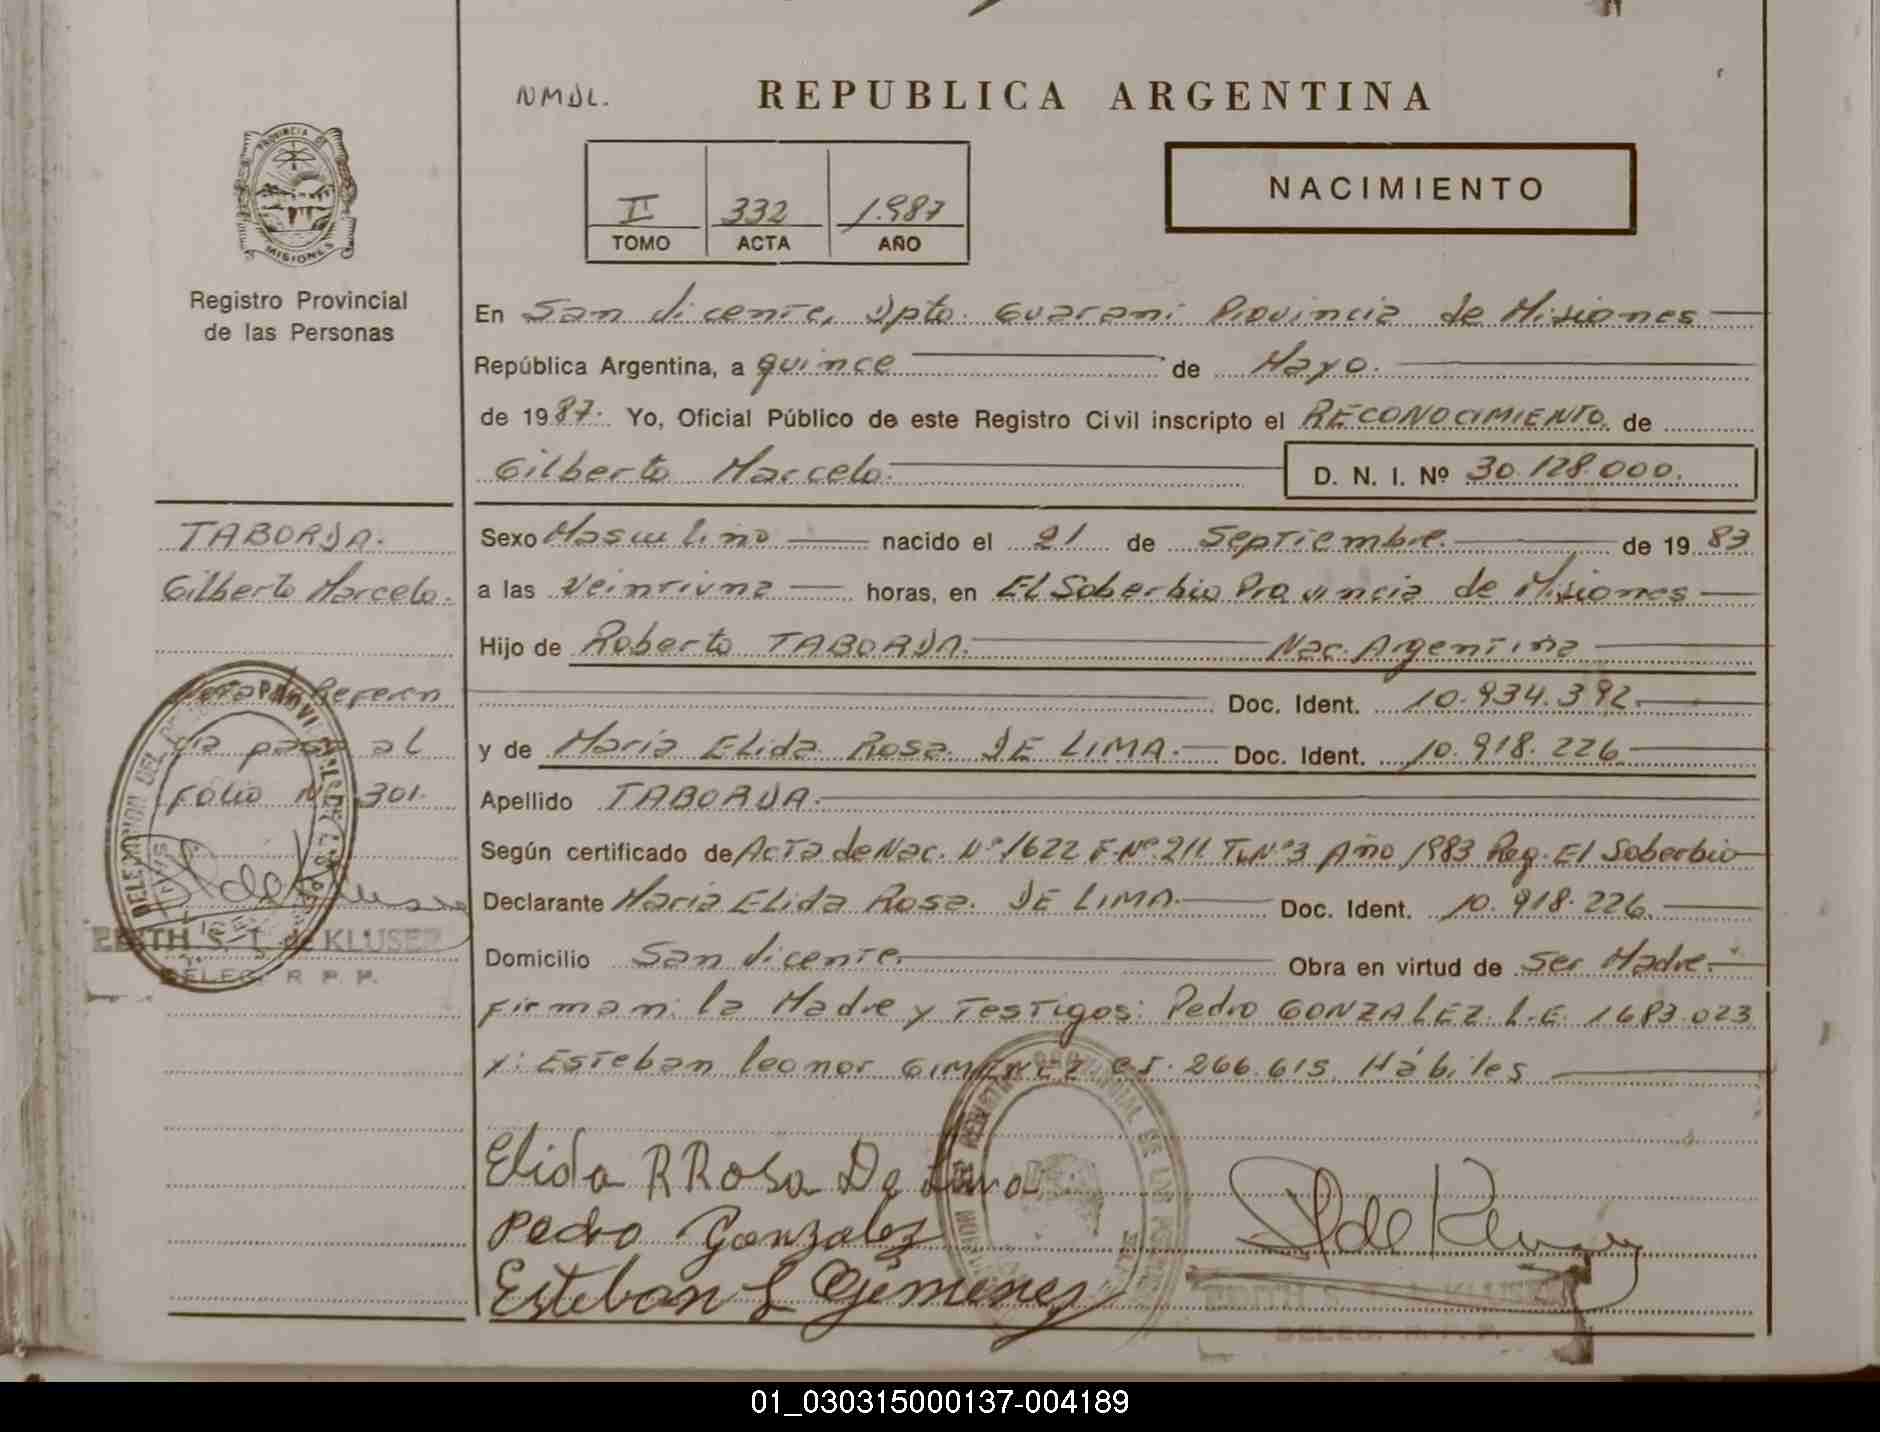 NMDL.
REPUBLICA ARGENTINA
PROVINCIA DE
MISIONES
II 332 1.987
TOMO ACTA AÑO
NACIMIENTO
Registro Provincial
de las Personas
En San Vicente, Dpto. Guaraní Provincia de Misiones
República Argentina, a quince de Mayo.
de 1987. Yo, Oficial Público de este Registro Civil inscripto el RECONOCIMIENTO de
Gilberto Marcelo. D. N. I. Nº 30.128.000.
TABORDA.
Gilberto Marcelo.
Nota de Referen
cia pasa al
folio Nº 301.
EDITH S. T. de KLUSER
DELEG. R. P. P.
Sexo Masculino nacido el 21 de Septiembre. de 1983
a las Veintiuna horas, en El Soberbio Provincia de Misiones
Hijo de Roberto TABORDA. Nac. Argentina
Doc. Ident. 10.934.392.
y de María Elida Rosa DE LIMA. Doc. Ident. 10.918.226
Apellido TABORDA.
Según certificado de Acta de Nac. Nº 1622 F.Nº 211 T.Nº 3 Año 1983 Reg. El Soberbio
Declarante María Elida Rosa DE LIMA. Doc. Ident. 10.918.226.
Domicilio San Vicente. Obra en virtud de Ser Madre.
Firman: la Madre y Testigos: Pedro GONZALEZ. L.E. 1683.023
y: Esteban Leonor GIMENEZ CI. 266.615 Hábiles
Elida R Rosa De Lima
Pedro Gonzalez
Esteban L Gimenez
DELEG. R. P. P.
01_030315000137-004189